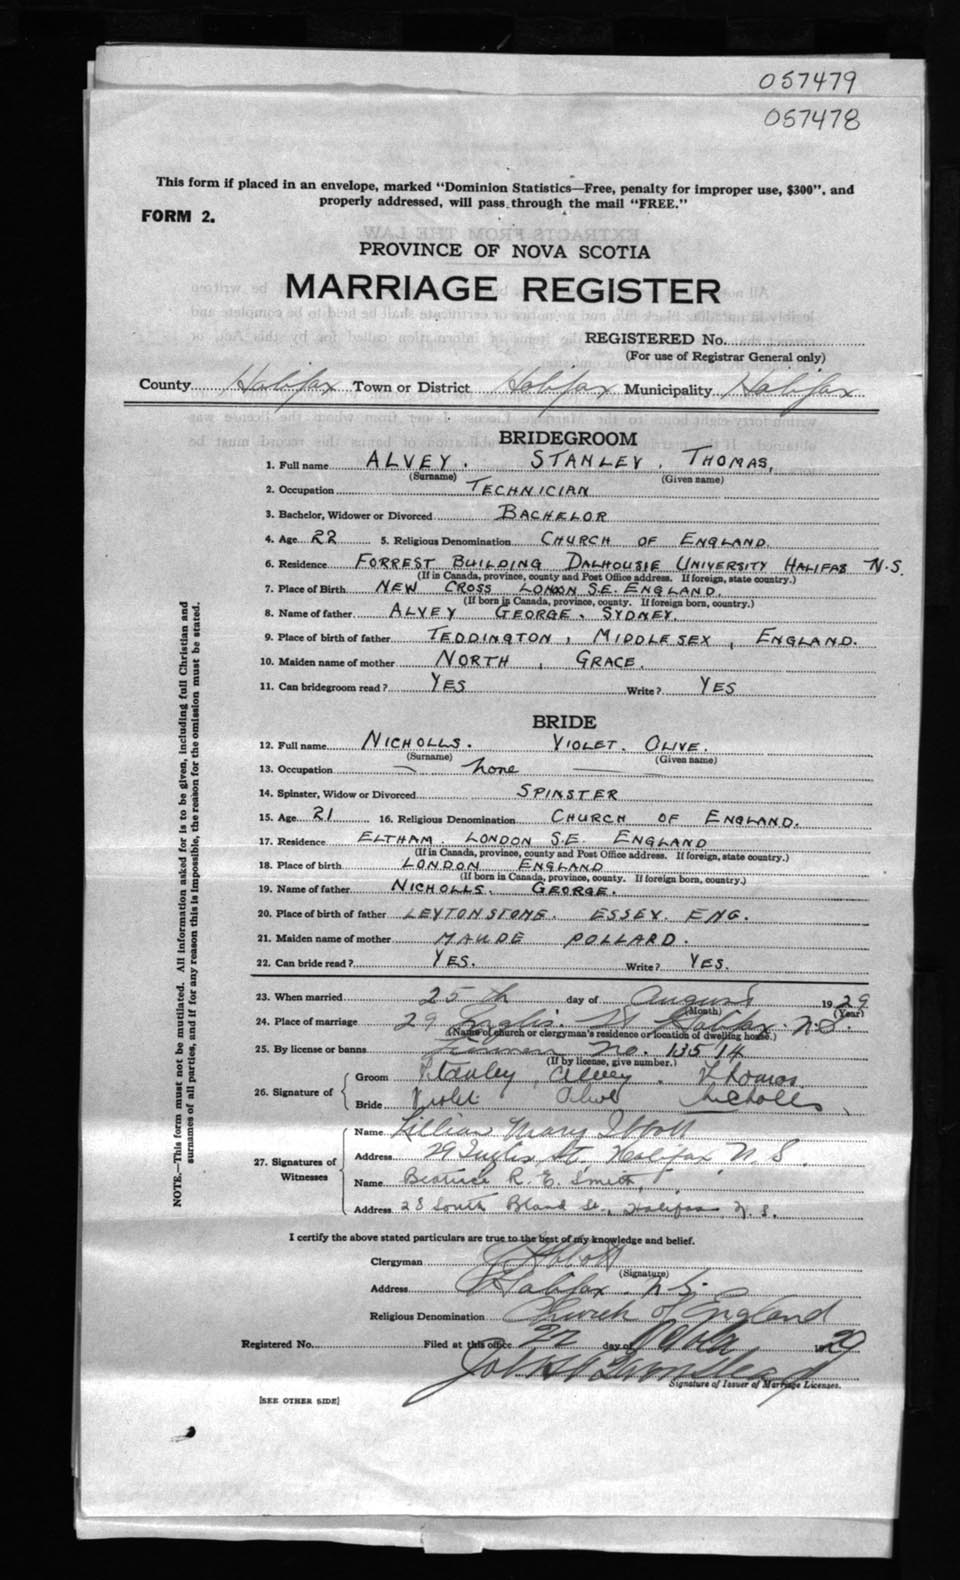 057479
057478
This form if placed in an envelope, marked "Dominion Statistics—Free, penalty for improper use, $300", and
properly addressed, will pass through the mail "FREE."
FORM 2.
PROVINCE OF NOVA SCOTIA
MARRIAGE REGISTER
REGISTERED No.
(For use of Registrar General only)
County Halifax Town or District Halifax Municipality Halifax
BRIDEGROOM
1. Full name ALVEY. STANLEY. THOMAS,
(Surname) (Given name)
2. Occupation TECHNICIAN
3. Bachelor, Widower or Divorced BACHELOR
4. Age 22 5. Religious Denomination CHURCH OF ENGLAND.
6. Residence FORREST BUILDING DALHOUSIE UNIVERSITY HALIFAX N.S.
(If in Canada, province, county and Post Office address. If foreign, state country.)
7. Place of Birth NEW CROSS LONDON S.E. ENGLAND.
(If born in Canada, province, county. If foreign born, country.)
8. Name of father ALVEY GEORGE. SYDNEY.
9. Place of birth of father TEDDINGTON, MIDDLESEX, ENGLAND.
10. Maiden name of mother NORTH, GRACE.
11. Can bridegroom read? YES Write? YES
BRIDE
12. Full name NICHOLLS. VIOLET. OLIVE.
(Surname) (Given name)
13. Occupation — none —
14. Spinster, Widow or Divorced SPINSTER
15. Age 21 16. Religious Denomination CHURCH OF ENGLAND.
17. Residence ELTHAM. LONDON S.E. ENGLAND
(If in Canada, province, county and Post Office address. If foreign, state country.)
18. Place of birth LONDON ENGLAND
(If born in Canada, province, county. If foreign born, country.)
19. Name of father NICHOLLS. GEORGE.
20. Place of birth of father LEYTONSTONE. ESSEX. ENG.
21. Maiden name of mother MAUDE POLLARD.
22. Can bride read? YES. Write? YES.
23. When married 25th day of August 1929
(Month) (Year)
24. Place of marriage 29 Inglis St Halifax N.S.
(Name of church or clergyman's residence or location of dwelling house.)
25. By license or banns License No. 13514
(If by license, give number.)
26. Signature of Groom Stanley Alvey Thomas
Bride Violet Olive Nicholls
27. Signatures of Witnesses
Name Lillian Mary Ibbott
Address 29 Inglis St, Halifax N.S.
Name Beatrice R. E. Smith,
Address 28 South Bland St., Halifax N.S.
I certify the above stated particulars are true to the best of my knowledge and belief.
Clergyman
(Signature)
Address Halifax N.S.
Religious Denomination Church of England
Registered No. Filed at this office 22 day of 1929
Signature of Issuer of Marriage Licenses.
[SEE OTHER SIDE]
NOTE.—This form must not be mutilated. All information asked for is to be given, including full Christian and
surnames of all parties, and if for any reason this is impossible, the reason for the omission must be stated.